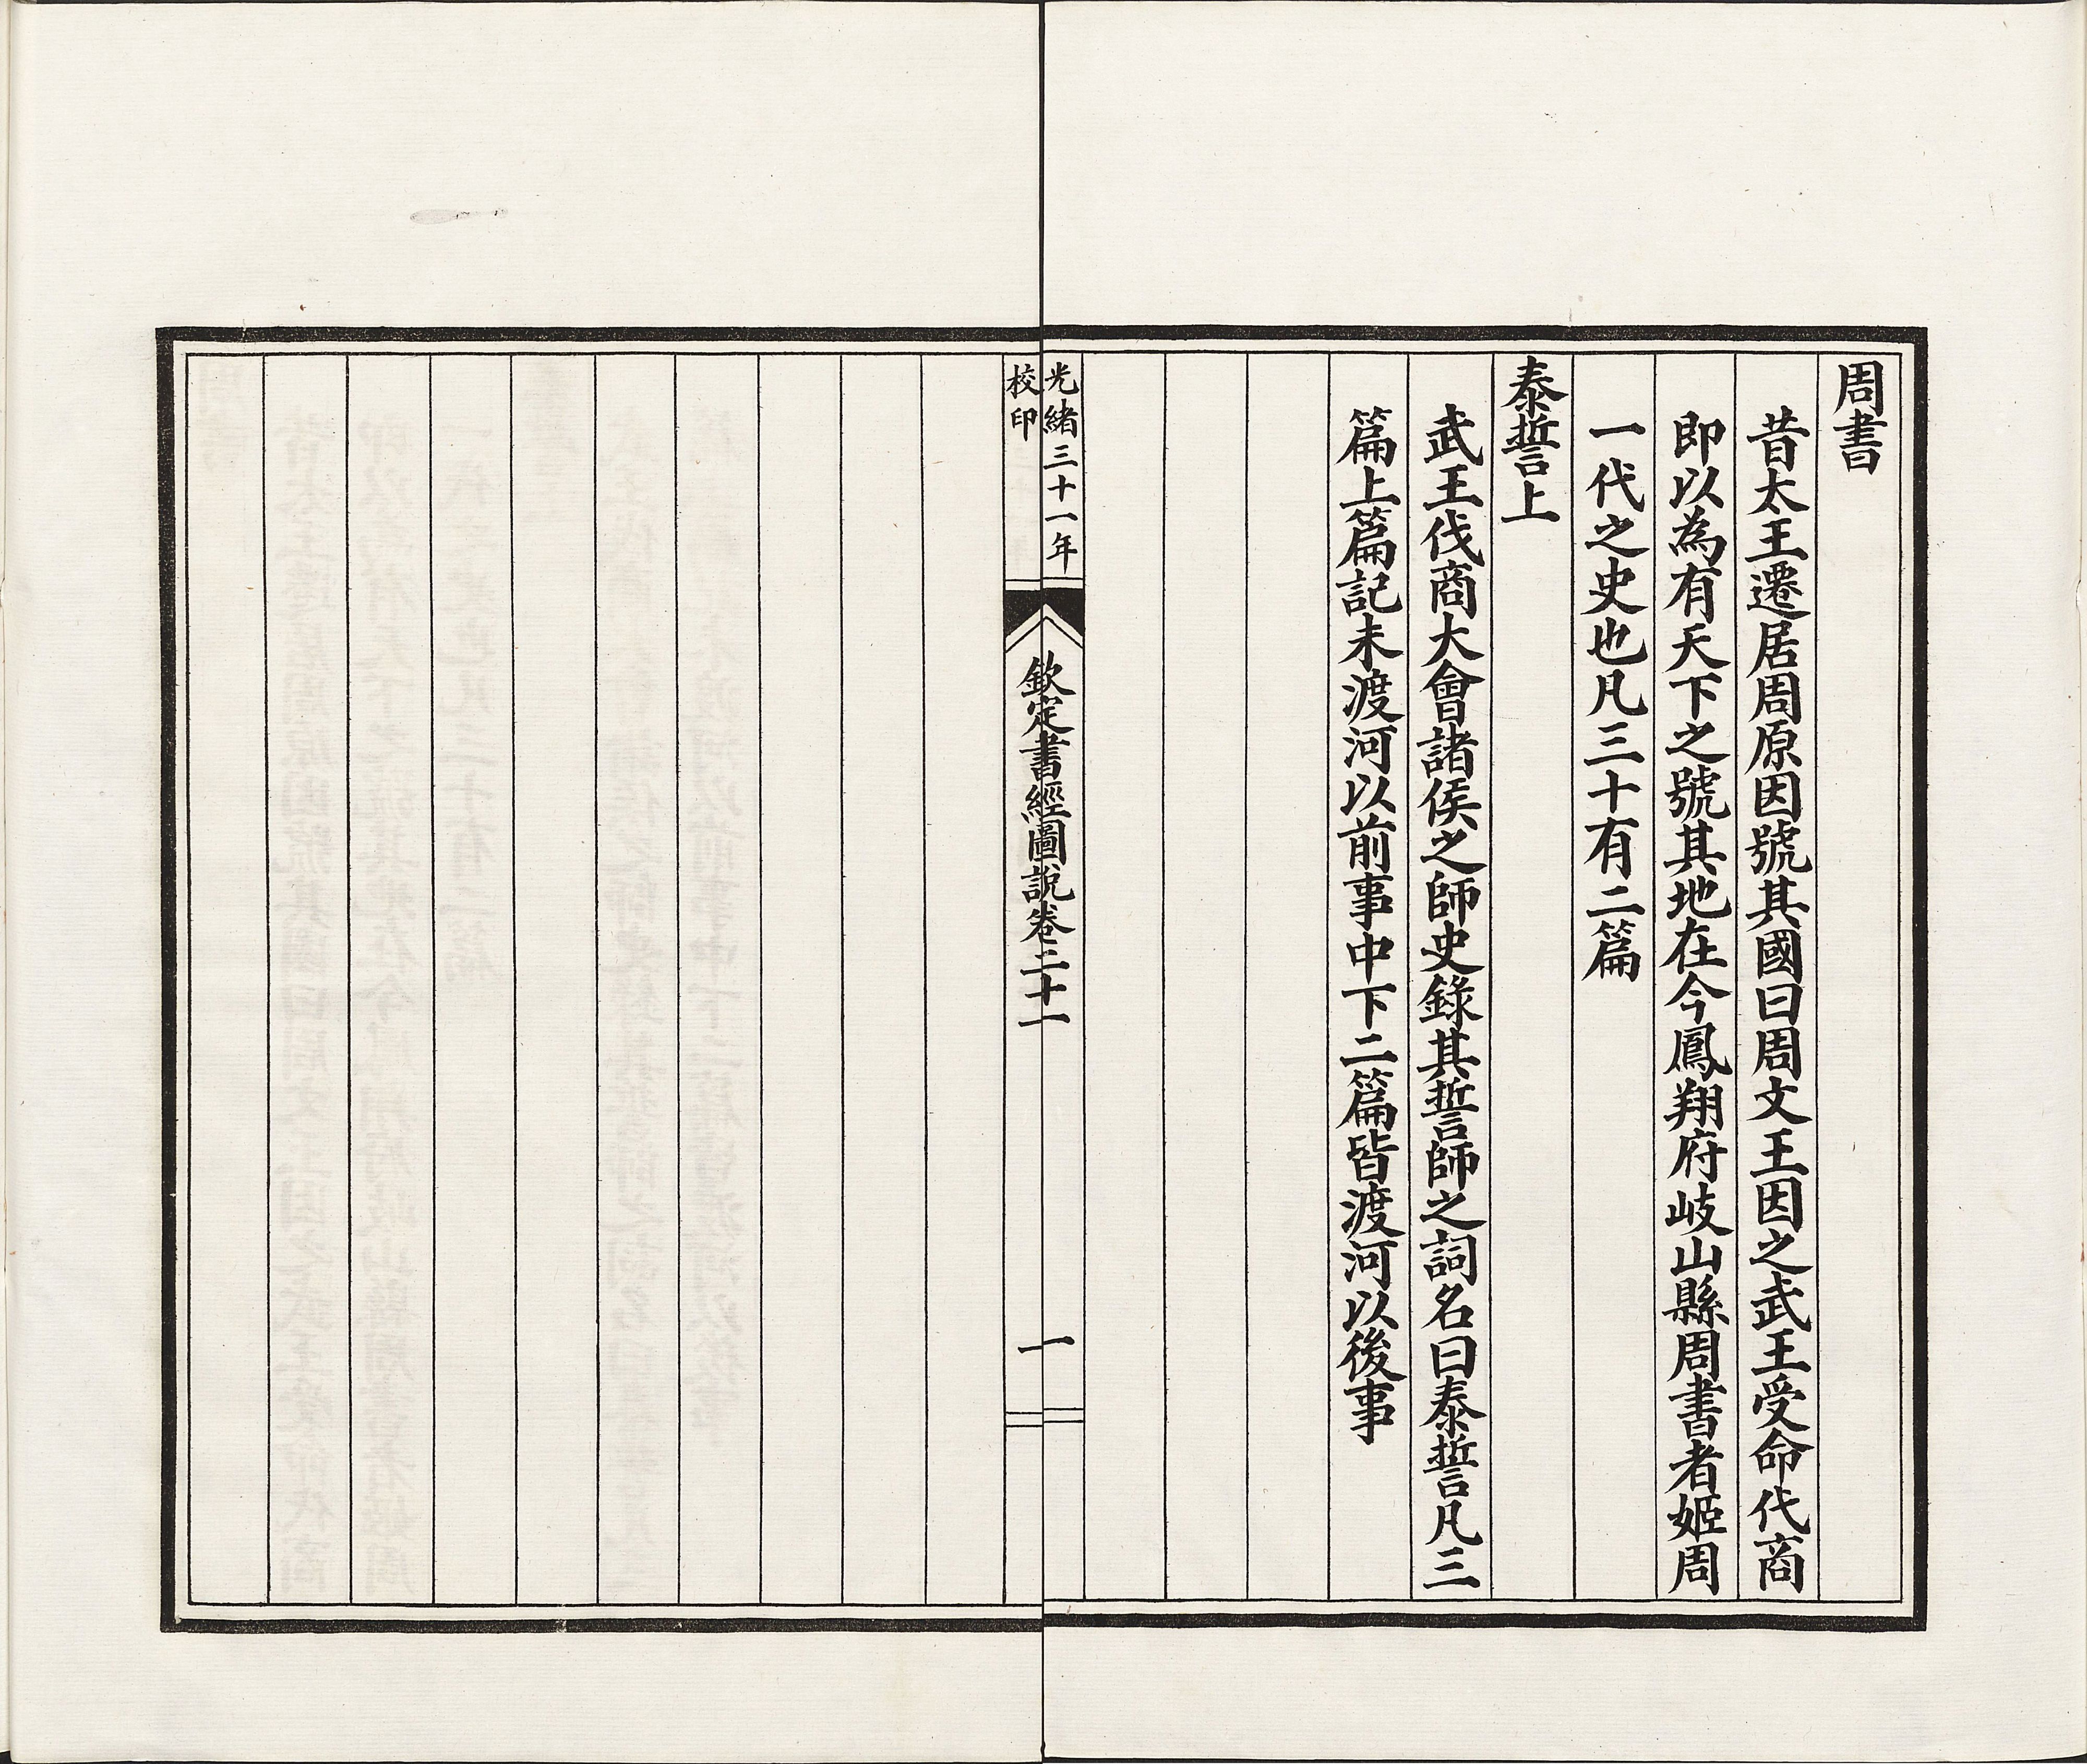 周書
昔太王遷居周原因號其國曰周文王因之武王受命代商
即以為有天下之號其地在今鳳翔府岐山縣周書者姬周
一代之史也凡三十有二篇
泰誓上
武王伐商大會諸侯之師史錄其誓師之詞名曰泰誓凡三
篇上篇記未渡河以前事中下二篇皆渡河以後事
光緒三十一年
校印
欽定書經圖說卷二十一
一